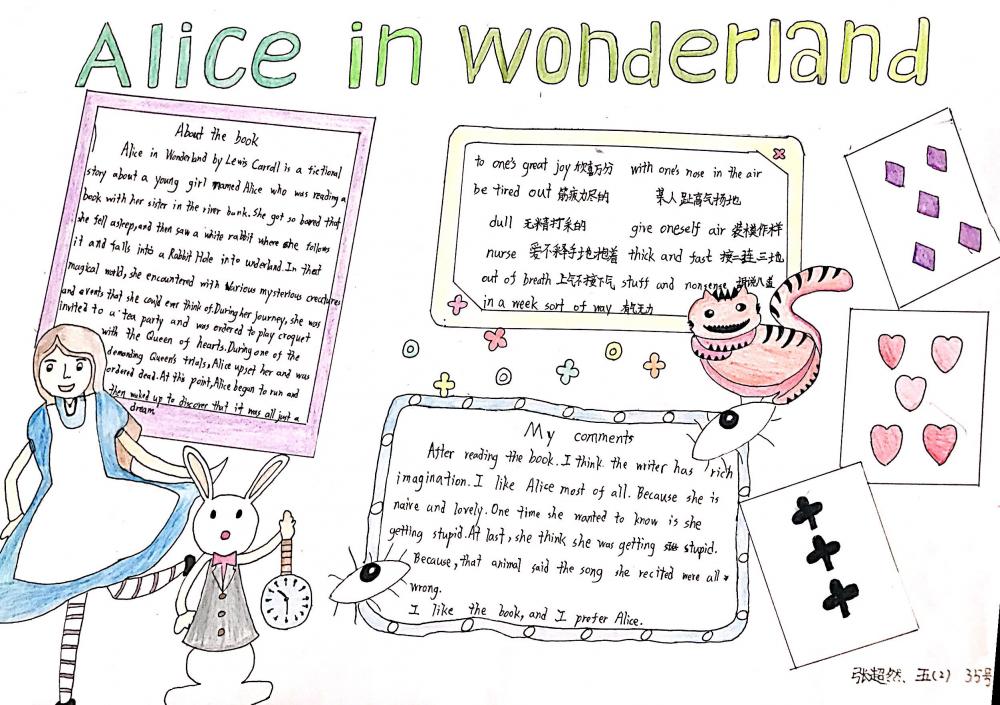 Alice in wonderland
About the book
Alice in Wonderland by Lewis Carroll is a fictional
story about a young girl named Alice who was reading a
book with her sister in the river bank. She got so bored that
she fell asleep, and then saw a white rabbit where she follows
it and falls into a Rabbit Hole into underland. In that
magical world, she encountered with Various mysterious creatures
and events that she could ever think of. During her journey, she was
invited to a tea party and was ordered to play croquet
with the Queen of hearts. During one of the
demanding Queen's trials, Alice upset her and was
ordered dead. At this point, Alice began to run and
then waked up to discover that it was all just a
dream.
to one's great joy 欣喜万分 with one's nose in the air
be tired out 筋疲力尽的 某人趾高气扬地
dull 无精打采的 give oneself air 装模作样
nurse 爱不释手地抱着 thick and fast 接二连三地
out of breath 上气不接下气 stuff and nonsense 胡说八道
in a week sort of way 有气无力
My comments
After reading the book. I think the writer has rich
imagination. I like Alice most of all. Because she is
naive and lovely. One time she wanted to know is she
getting stupid. At last, she think she was getting stupid.
Because, that animal said the song she recited were all
wrong.
I like the book, and I prefer Alice.
张超然、五(2) 35号